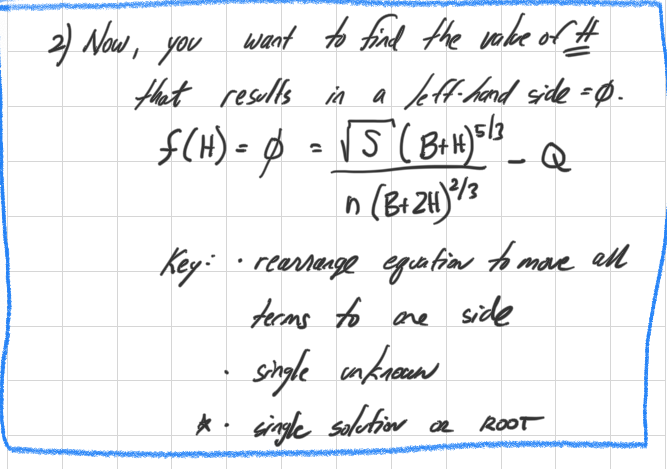 2) Now, you want to find the value of H
that results in a left-hand side = ϕ.
f(H) = ϕ = √S (B+H)^5/3 / n (B+2H)^2/3 - Q
Key: · rearrange equation to move all
terms to one side
· single unknown
* · single solution or ROOT